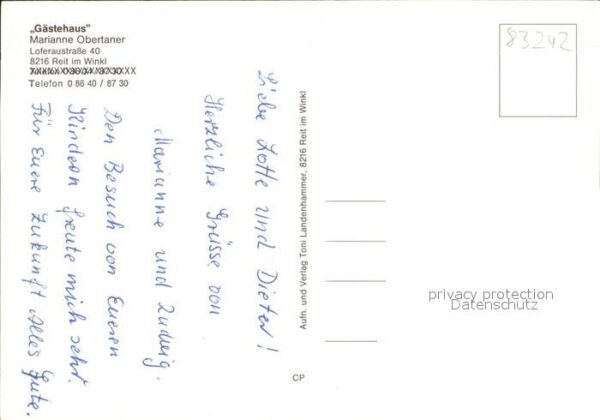 „Gästehaus"
Marianne Obertaner
Loferaustraße 40
8216 Reit im Winkl
Telefon 0 86 40 / 87 30
83242
Liebe Lotte und Dieter!
Herzliche Grüsse von
Marianne und Ludwig.
Den Besuch von Eueren
Kindern freute mich sehr.
Für Euere Zukunft Alles Gute.
Aufn. und Verlag Toni Landenhammer, 8216 Reit im Winkl
CP
privacy protection
Datenschutz